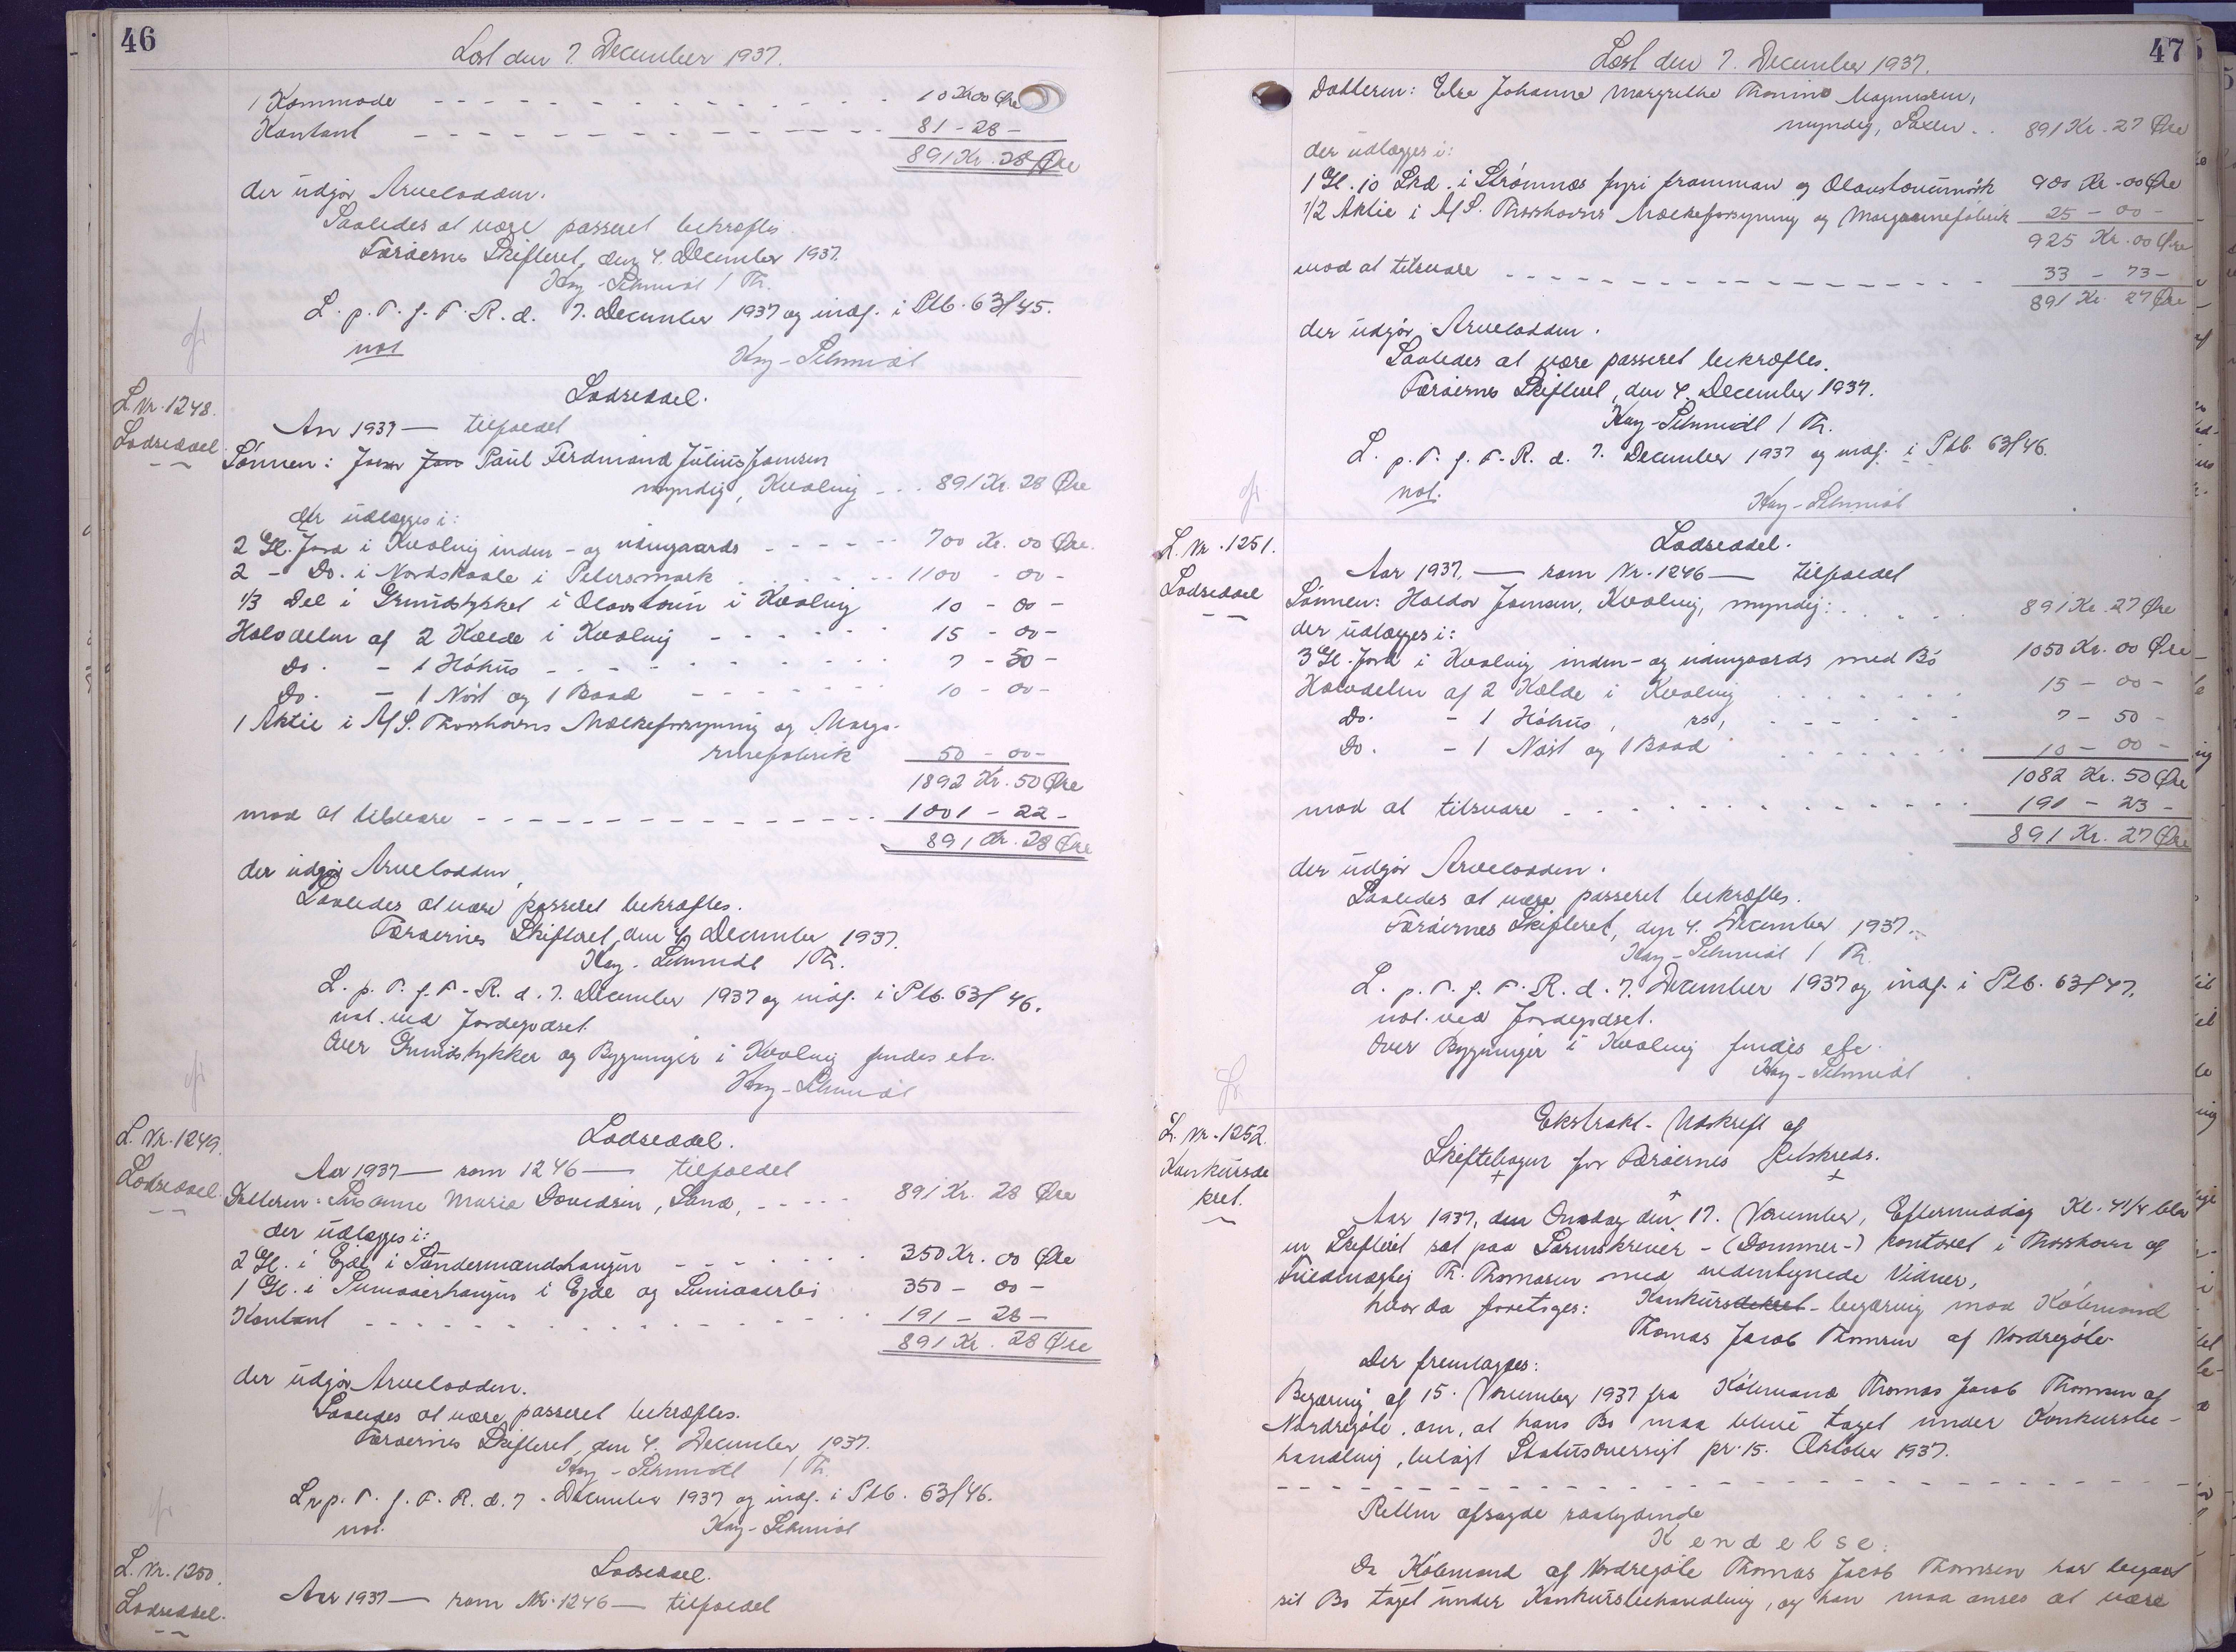 46
Læst den 7. December 1937.
1 Kommode - - - 10 Kr 00 Øre
Kontant - - - 81 - 28 -
891 Kr. 28 Øre
der udgør Arvelodden.
Saaledes at være passeret bekræftes.
Færøernes Skifteret, den 4. December 1937.
Kay-Schmidt / Th.
L. p. T. f. F. R. d. 7. December 1937 og indf. i Ptb. 63/45.
not
Kay-Schmidt
L. Nr. 1248.
Lodseddel.
Lodseddel.
Aar 1937 — tilfaldet
Sønnen: Paul Ferdinand Julius Joensen
myndig, Kvalvig - . . 891 Kr. 28 Øre
der udlægges i:
2 Gl. Jord i Kvalvig inden- og udengaards - - - 700 Kr. 00 Øre.
2 - Do. i Nordskaale i Petersmark - - - 1100 - 00 -
1/3 Del i Grundstykket i Olavstoún i Kvalvig 10 - 00 -
Halvdelen af 2 Kælde i Kvalvig - - - 15 - 00 -
Do. - 1 Hóhus - - - 7 - 50 -
Do. - 1 Nøst og 1 Baad - - - 10 - 00 -
1 Aktie i A/S. Thorshavns Mælkeforsyning og Marga-
rinefabrik 50 - 00 -
1892 Kr. 50 Øre
mod at tilsvare - - - 1001 - 22 -
891 Kr. 28 Øre
der udgør Arvelodden,
Saaledes at være passeret bekræftes.
Færøernes Skifteret, den 4. December 1937.
Kay-Schmidt / Th.
L. p. T. f. F. R. d. 7. December 1937 og indf. i Ptb. 63/46.
not. ved Jordegodset.
Over Grundstykker og Bygninger i Kvalvig findes etc.
Kay-Schmidt
L. Nr. 1249.
Lodseddel.
Lodseddel.
Aar 1937 — som 1246 — tilfaldet
Datteren: Susanne Maria Davidsen, Sand, - - - 891 Kr. 28 Øre
der udlægges i:
2 Gl. i Ejde i Søndermandshaugen - - - 350 Kr. 00 Øre
1 Gl. i i Ejde og 350 - 00 -
Kontant - - - 191 - 28 -
891 Kr. 28 Øre
der udgør Arvelodden.
Saaledes at være passeret bekræftes.
Færøernes Skifteret, den 4. December 1937.
Kay-Schmidt / Th.
L. p. T. f. F. R. d. 7. December 1937 og indf. i Ptb. 63/46.
not.
Kay-Schmidt
L. Nr. 1250.
Lodseddel.
Lodseddel.
Aar 1937 — som Nr. 1246 — tilfaldet
47
Læst den 7. December 1937.
Datteren: Else Johanne Margrethe Thomine Magnussen,
myndig, Saxen . . 891 Kr. 27 Øre
der udlægges i:
1 Gl. 10 Skd. i Strømnæs fyri framman og Olavstovumørk 900 Kr. 00 Øre
1/2 Aktie i A/S. Thorshavns Mælkeforsyning og Margarinefabrik 25 - 00 -
925 Kr. 00 Øre
mod at tilsvare - - - 33 - 73 -
891 Kr. 27 Øre
der udgør Arvelodden.
Saaledes at være passeret bekræftes.
Færøernes Skifteret, den 4. December 1937.
Kay-Schmidt / Th.
L. p. T. f. F. R. d. 7. December 1937 og indf. i Ptb. 63/46.
not.
Kay-Schmidt
L. Nr. 1251.
Lodseddel
Lodseddel.
Aar 1937, — som Nr. 1246 — tilfaldet
Sønnen: Haldor Joensen, Kvalvig, myndig: . . . 891 Kr. 27 Øre
der udlægges i:
3 Gl. Jord i Kvalvig inden- og udengaards med Bó 1050 Kr. 00 Øre
Halvdelen af 2 Kælde i Kvalvig . . . 15 - 00 -
Do. - 1 Hóhus, - - - 7 - 50 -
Do. - 1 Nøst og 1 Baad . . . 10 - 00 -
1082 Kr. 50 Øre
mod at tilsvare - - - 191 - 23 -
891 Kr. 27 Øre
der udgør Arvelodden.
Saaledes at være passeret bekræftes.
Færøernes Skifteret, den 4. December 1937.
Kay-Schmidt / Th.
L. p. T. f. F. R. d. 7. December 1937 og indf. i Ptb. 63/47.
not. ved Jordegodset.
Over Bygninger i Kvalvig findes etc.
Kay-Schmidt
L. Nr. 1252.
Konkursde
kret.
Ekstrakt-Udskrift af
Skiftebogen for Færøernes Retskreds.
Aar 1937, den Onsdag den 17. November, Eftermiddag Kl. 4 1/4 blev
en Skifteret sat paa Sorenskriver-(Dommer-) kontoret i Thorshavn af
Fuldmægtig Th. Thomasen med undertegnede Vidner,
hvor da foretoges: Konkursdekret-begæring mod Købmand
Thomas Jacob Thomsen af Nordregøte
Der fremlagdes:
Begæring af 15. November 1937 fra Købmand Thomas Jacob Thomsen af
Nordregøte, om, at hans Bo maa blive taget under Konkursbe-
handling, bilagt Statusoversigt pr. 15. Oktober 1937.
Retten afsagde saalydende
Kendelse:
Da Købmand af Nordregøte Thomas Jacob Thomsen har begært
sit Bo taget under Konkursbehandling, og han maa anses at være